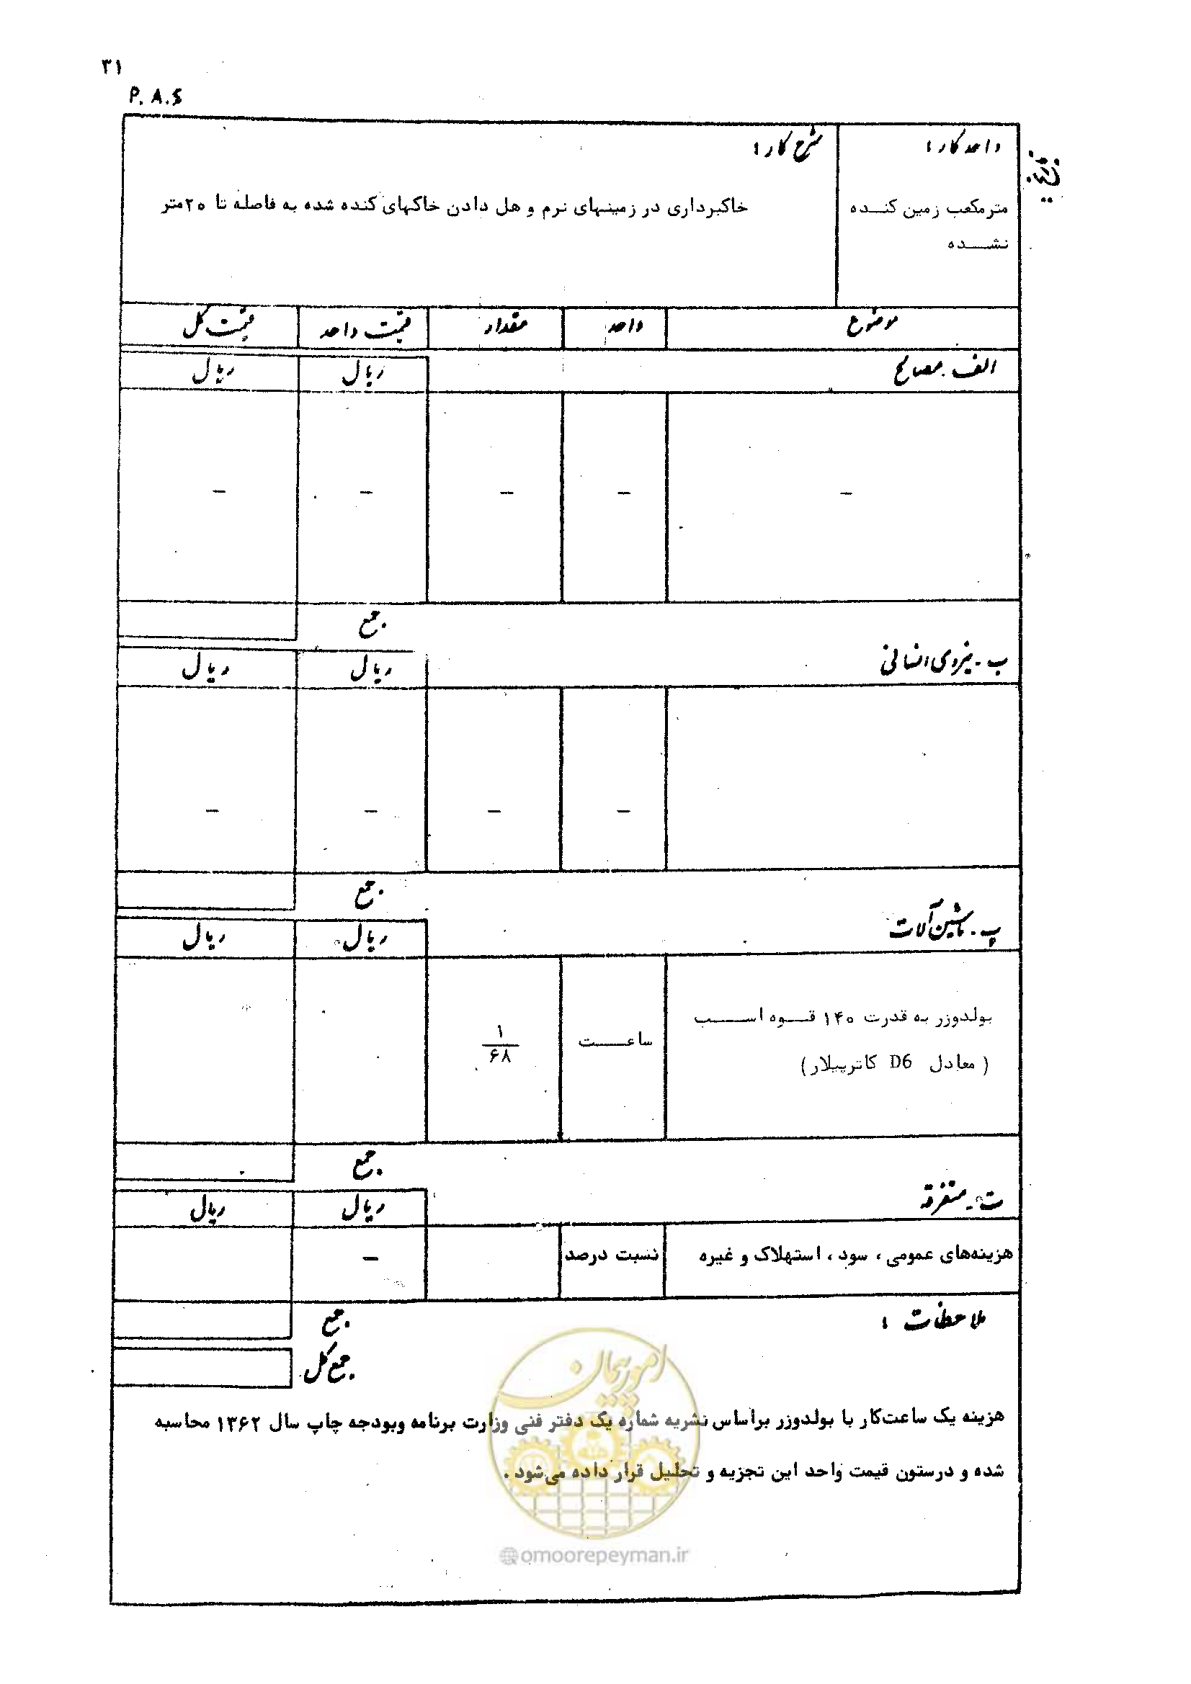 ۳۱
P. A. S
واحد کار :
شرح کار :
مترمکعب زمین کنـــده
نشـــده
خاکبرداری در زمینهای نرم و هل دادن خاکهای کنده شده به فاصله تا ۲۰متر
موضوع واحد مقدار قیمت واحد قیمت کل
الف . مصالح ریال ریال
– – – – –
جمع
ب . نیروی انسانی ریال ریال
– – – –
جمع
پ . ماشین‌آلات ریال ریال
بولدوزر به قدرت ۱۴۰ قـــوه اســـب
( معادل D6 کاترپیلار)
ساعـــت
۱
۶۸
جمع
ت . متفرقه ریال ریال
هزینه‌های عمومی ، سود ، استهلاک و غیره نسبت درصد –
جمع
ملاحظات :
جمع کل
هزینه یک ساعت‌کار با بولدوزر براساس نشریه شماره یک دفتر فنی وزارت برنامه وبودجه چاپ سال ۱۳۶۲ محاسبه
شده و درستون قیمت واحد این تجزیه و تحلیل قرار داده می‌شود .
امور پیمان
@omoorepeyman.ir